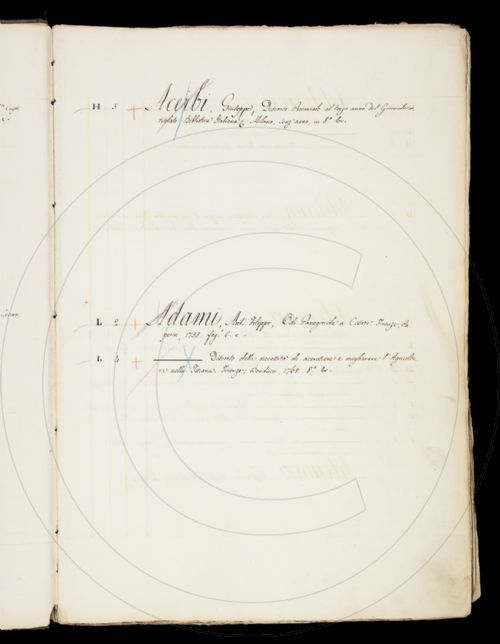 H 5 + Acerbi, Giuseppe, Discorso Proemiale al terzo anno del Giornale
Biblioteca Italiana, Milano, senz'anno, in 8° br.
L 2 + Adami, Ant. Filippo, Odi Panegiriche a Cesare. Firenze,
1755. fog.
L 4 + ——— Discorso della necessità di accrescere e migliorare l'Agricoltu
ra nella Toscana. Firenze, 1768. 8° br.